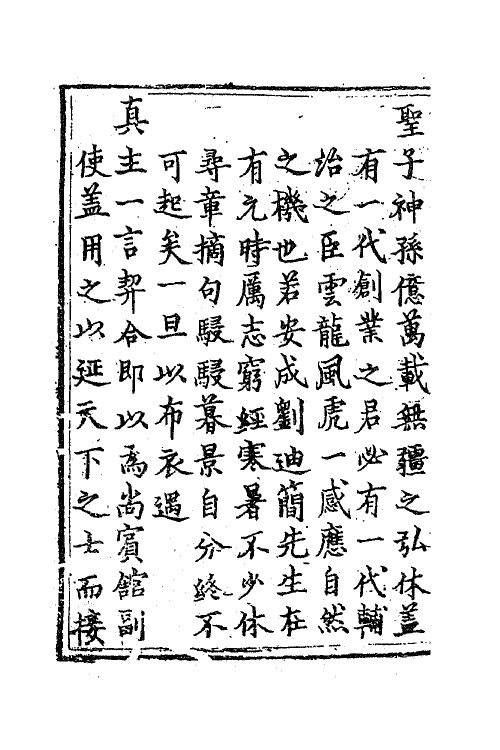 聖子神孫億萬載無疆之弘休蓋
有一代創業之君必有一代輔
治之臣雲龍風虎一感應自然
之機也若安成劉迪簡先生在
有元時厲志窮經寒暑不少休
尋章摘句駸駸暮景自分終不
可起矣一旦以布衣遇
真主一言契合即以為尚賓館副
使蓋用之以延天下之士而接